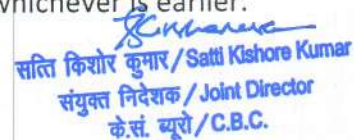 whichever is earlier.
सत्ति किशोर कुमार/Satti Kishore Kumar
संयुक्त निदेशक/Joint Director
के.सं. ब्यूरो/C.B.C.